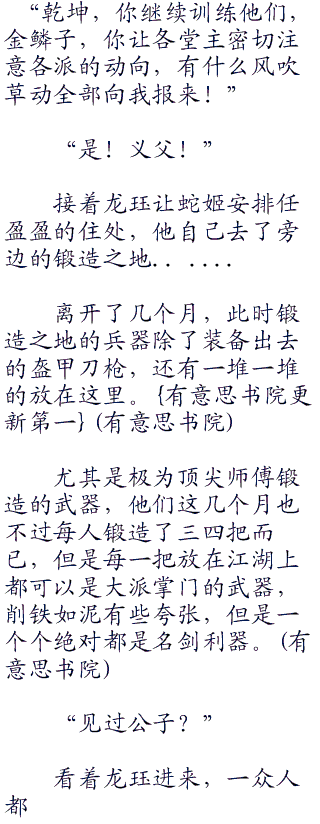 “乾坤，你继续训练他们，
金鳞子，你让各堂主密切注
意各派的动向，有什么风吹
草动全部向我报来！”
“是！义父！”
接着龙珏让蛇姬安排任
盈盈的住处，他自己去了旁
边的锻造之地．．．．．．
离开了几个月，此时锻
造之地的兵器除了装备出去
的盔甲刀枪，还有一堆一堆
的放在这里。{有意思书院更
新第一} (有意思书院)
尤其是极为顶尖师傅锻
造的武器，他们这几个月也
不过每人锻造了三四把而
已，但是每一把放在江湖上
都可以是大派掌门的武器，
削铁如泥有些夸张，但是一
个个绝对都是名剑利器。(有
意思书院)
“见过公子？”
看着龙珏进来，一众人
都